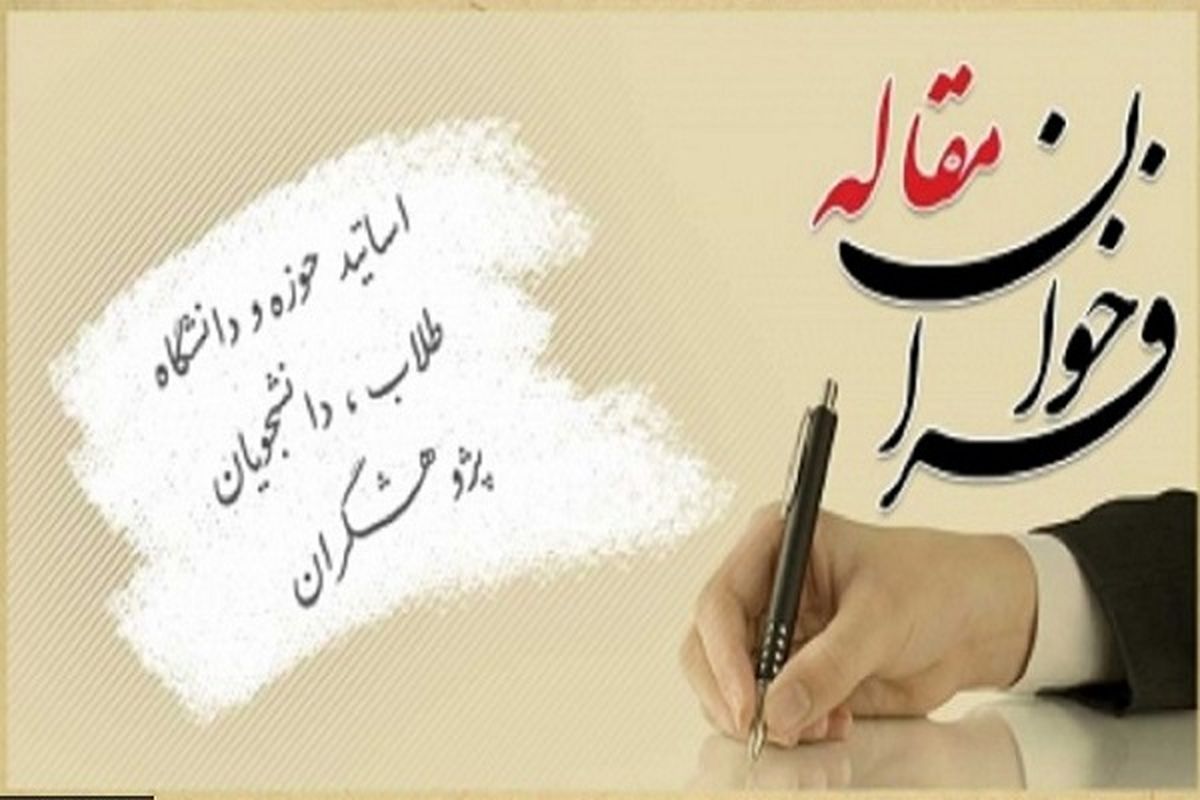 فراخوان
مقاله
اساتید حوزه و دانشگاه
طلاب ، دانشجویان
پژوهشگران